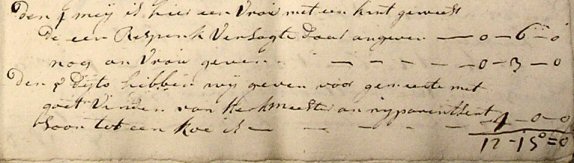 den 1 meij is hier een Vrou met een kint geweest
de een Versogte daar an geven — 0 – 6 – 0
nog an Vrou geven — — — — 0 – 3 – 0
den dijto hebben wij geven voor gemeente met
goet Vinden van kerkmeester an
Soon tot een koe is — — — — 1 – 0 – 0
12 – 15 = 0